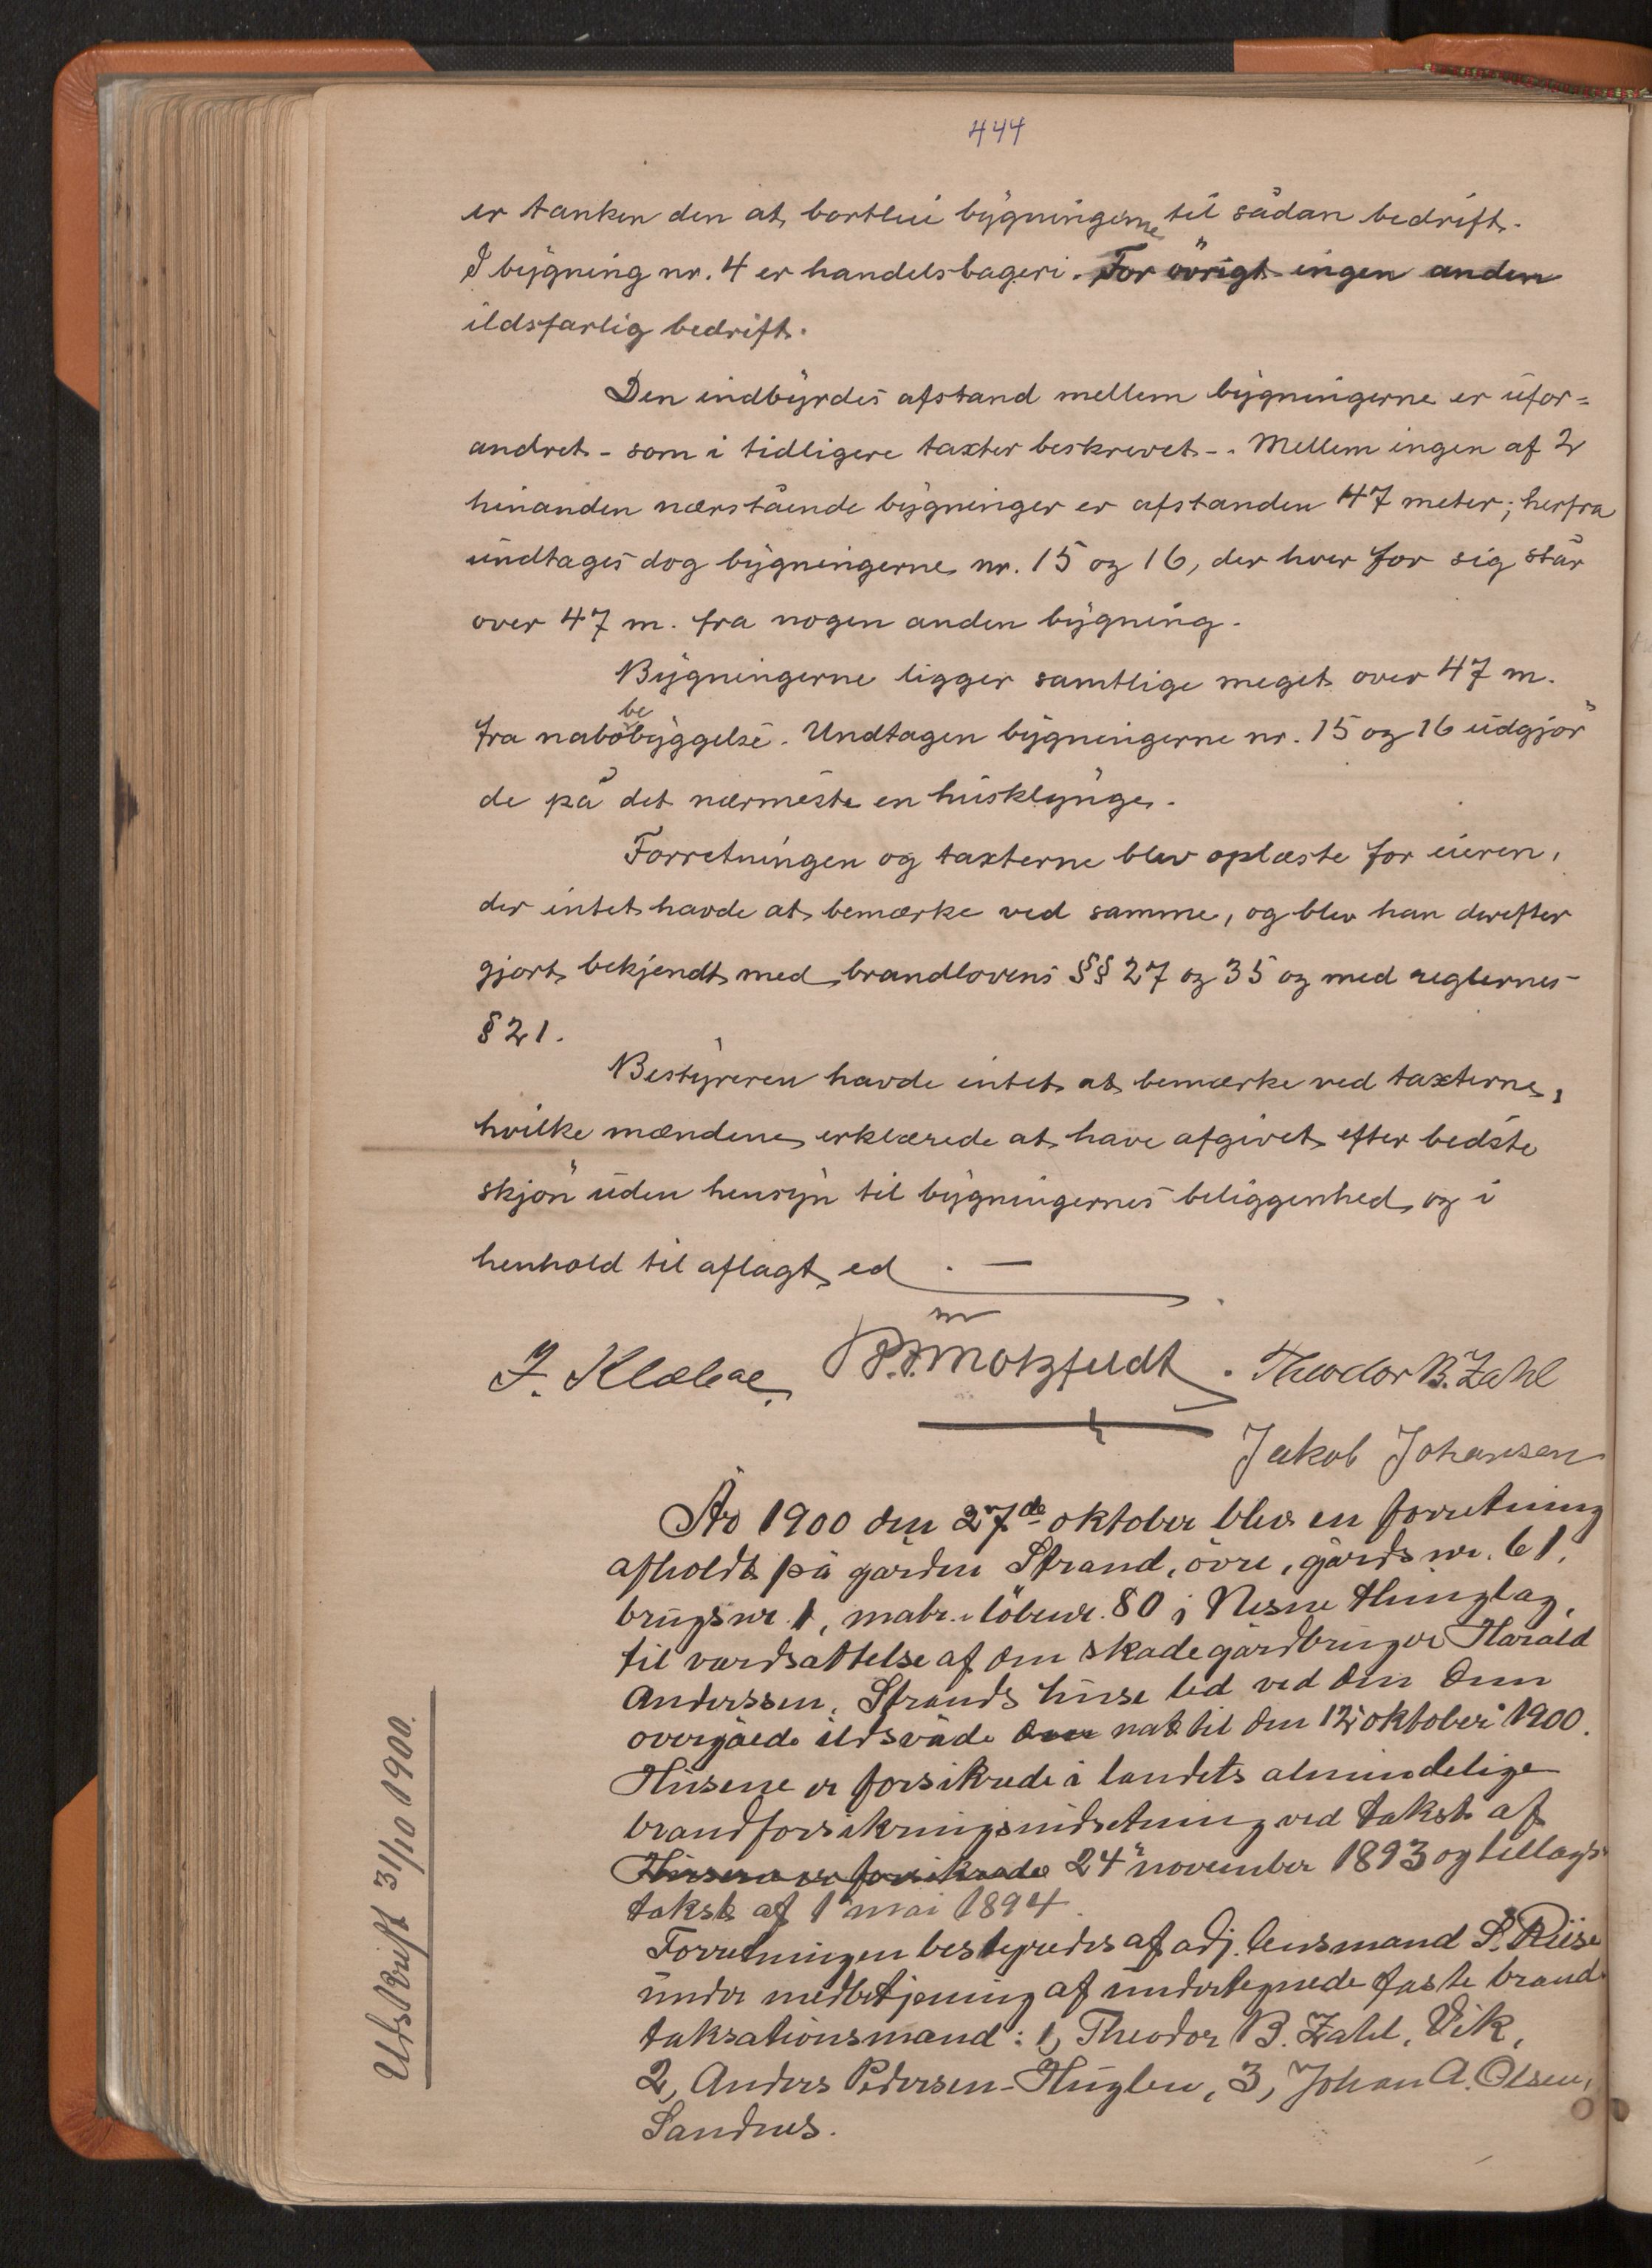 444
er tanken den at bortleie bygningerne til sådan bedrift.
I bygning nr. 4 er handelsbageri. For övrigt ingen anden
ildsfarlig bedrift.
Den indbyrdes afstand mellem bygningerne er ufor=
andret - som i tidligere taxter beskrevet -. Mellem ingen af 2
hinanden nærstående bygninger er afstanden 47 meter; herfra
undtages dog bygningerne nr. 15 og 16, der hver for sig står
over 47 m. fra nogen anden bygning.
Bygningerne ligger samtlige meget over 47 m.
fra nabobebyggelse. Undtagen bygningerne nr. 15 og 16 udgjör
de på det nærmeste en husklynge.
Forretningen og taxterne blev oplæste for eieren,
der intet havde at bemærke ved samme, og blev han derefter
gjort bekjendt med brandlovens §§ 27 og 35 og med reglernes
§ 21.
Bestyreren havde intet at bemærke ved taxterne,
hvilke mændene erklærede at have afgivet efter bedste
skjön uden hensyn til bygningernes beliggenhed og i
henhold til aflagt ed. —
J. Klæboe. P. F. Motzfeldt. Theodor B. Zahl
Jakob Johansen
År 1900 den 27de oktober blev en forretning
afholdt på gården Strand, övre, gårds nr. 61,
brugsnr. 1, matr. löbenr. 80 i Nesne thinglag,
til værdsættelse af den skade gårdbruger Harald
Anderssen, Strands huse led ved den dem
overgåede ildsvåde den nat til den 12 oktober 1900.
Husene er forsikrede i landets almindelige
brandforsikringsindretning ved takst af
Husene er forsikrede 24 november 1893 og tillægs
takst af 1 mai 1894.
Forretningen bestyredes af adj. lensmand S. Riise
under medbetjening af undertegnede faste brand
taksationsmænd: 1, Theodor B. Zahl, Vik,
2, Anders Pedersen-Huglen, 3, Johan A. Olsen,
Sandnes.
Udskrift 31/10 1900.